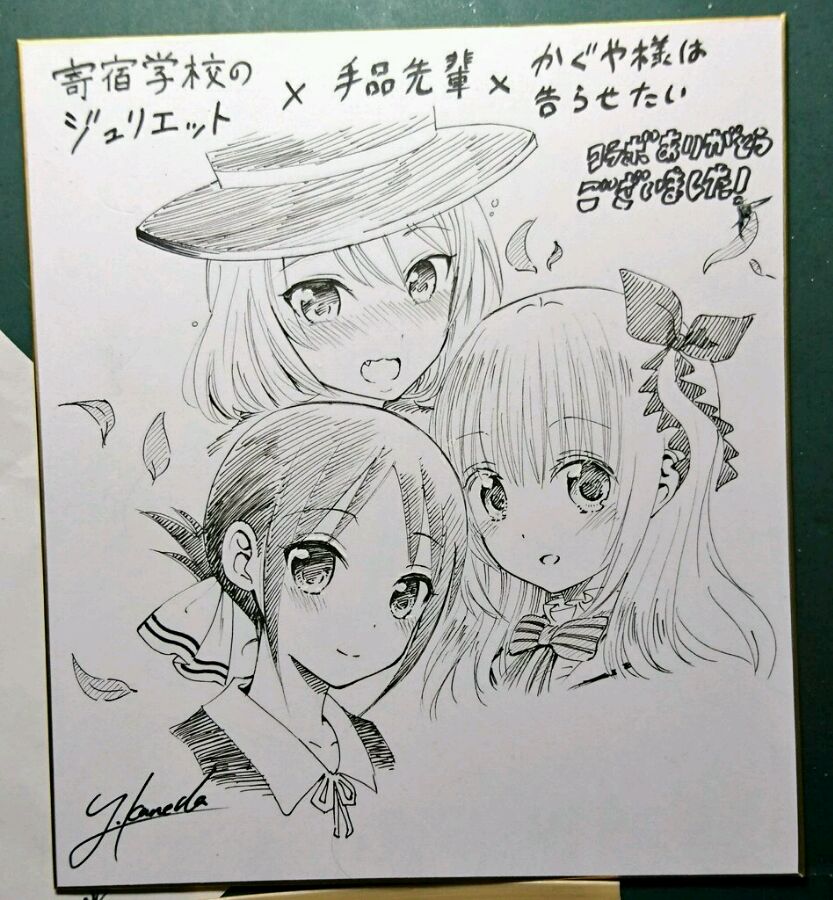 寄宿学校の
ジュリエット
×
手品先輩
×
かぐや様は
告らせたい
コラボありがとう
ございました!
Y.Kaneda